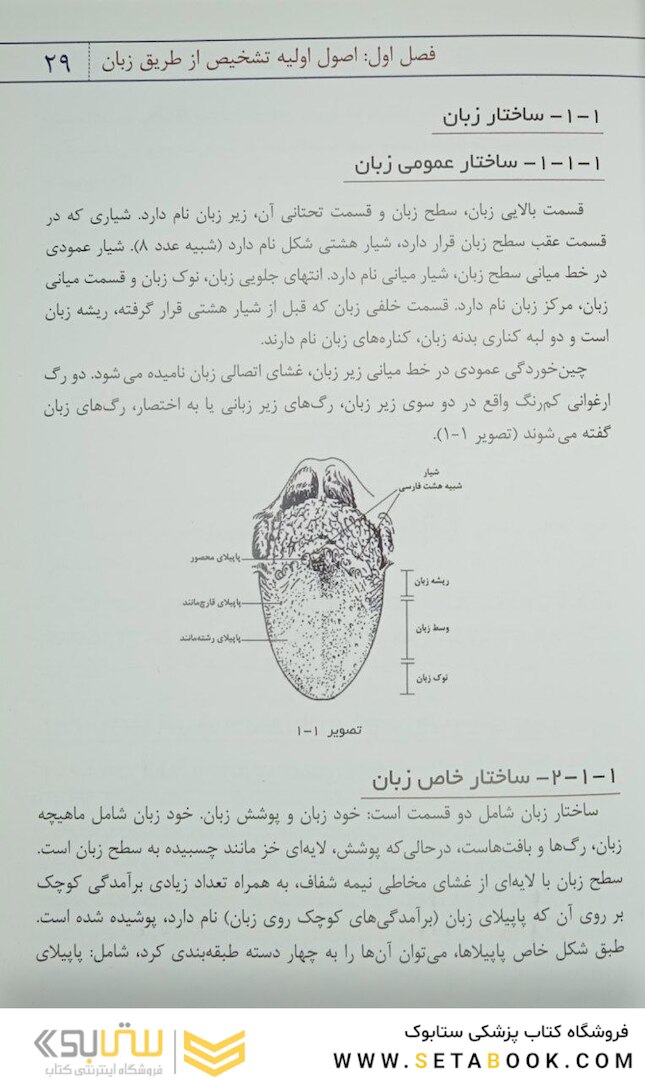 فصل اول: اصول اولیه تشخیص از طریق زبان ۲۹
۱-۱- ساختار زبان
۱-۱-۱- ساختار عمومی زبان
قسمت بالایی زبان، سطح زبان و قسمت تحتانی آن، زیر زبان نام دارد. شیاری که در
قسمت عقب سطح زبان قرار دارد، شیار هشتی شکل نام دارد (شبیه عدد ۸). شیار عمودی
در خط میانی سطح زبان، شیار میانی نام دارد. انتهای جلویی زبان، نوک زبان و قسمت میانی
زبان، مرکز زبان نام دارد. قسمت خلفی زبان که قبل از شیار هشتی قرار گرفته، ریشه زبان
است و دو لبه کناری بدنه زبان، کناره‌های زبان نام دارند.
چین‌خوردگی عمودی در خط میانی زیر زبان، غشای اتصالی زبان نامیده می شود. دو رگ
ارغوانی کم‌رنگ واقع در دو سوی زیر زبان، رگ‌های زیر زبانی یا به اختصار، رگ‌های زبان
گفته می شوند (تصویر ۱-۱).
شیار
شبیه هشت فارسی
پاپیلای محصور
ریشه زبان
پاپیلای قارچ‌مانند
وسط زبان
پاپیلای رشته‌مانند
نوک زبان
تصویر ۱-۱
۱-۱-۲- ساختار خاص زبان
ساختار زبان شامل دو قسمت است: خود زبان و پوشش زبان. خود زبان شامل ماهیچه
زبان، رگ‌ها و بافت‌هاست، درحالی‌که پوشش، لایه‌ای خز مانند چسبیده به سطح زبان است.
سطح زبان با لایه‌ای از غشای مخاطی نیمه شفاف، به همراه تعداد زیادی برآمدگی کوچک
بر روی آن که پاپیلای زبان (برآمدگی‌های کوچک روی زبان) نام دارد، پوشیده شده است.
طبق شکل خاص پاپیلاها، می‌توان آن‌ها را به چهار دسته طبقه‌بندی کرد، شامل: پاپیلای
فروشگاه کتاب پزشکی ستابوک
WWW.SETABOOK.COM
ستابوک
فروشگاه اینترنتی کتاب